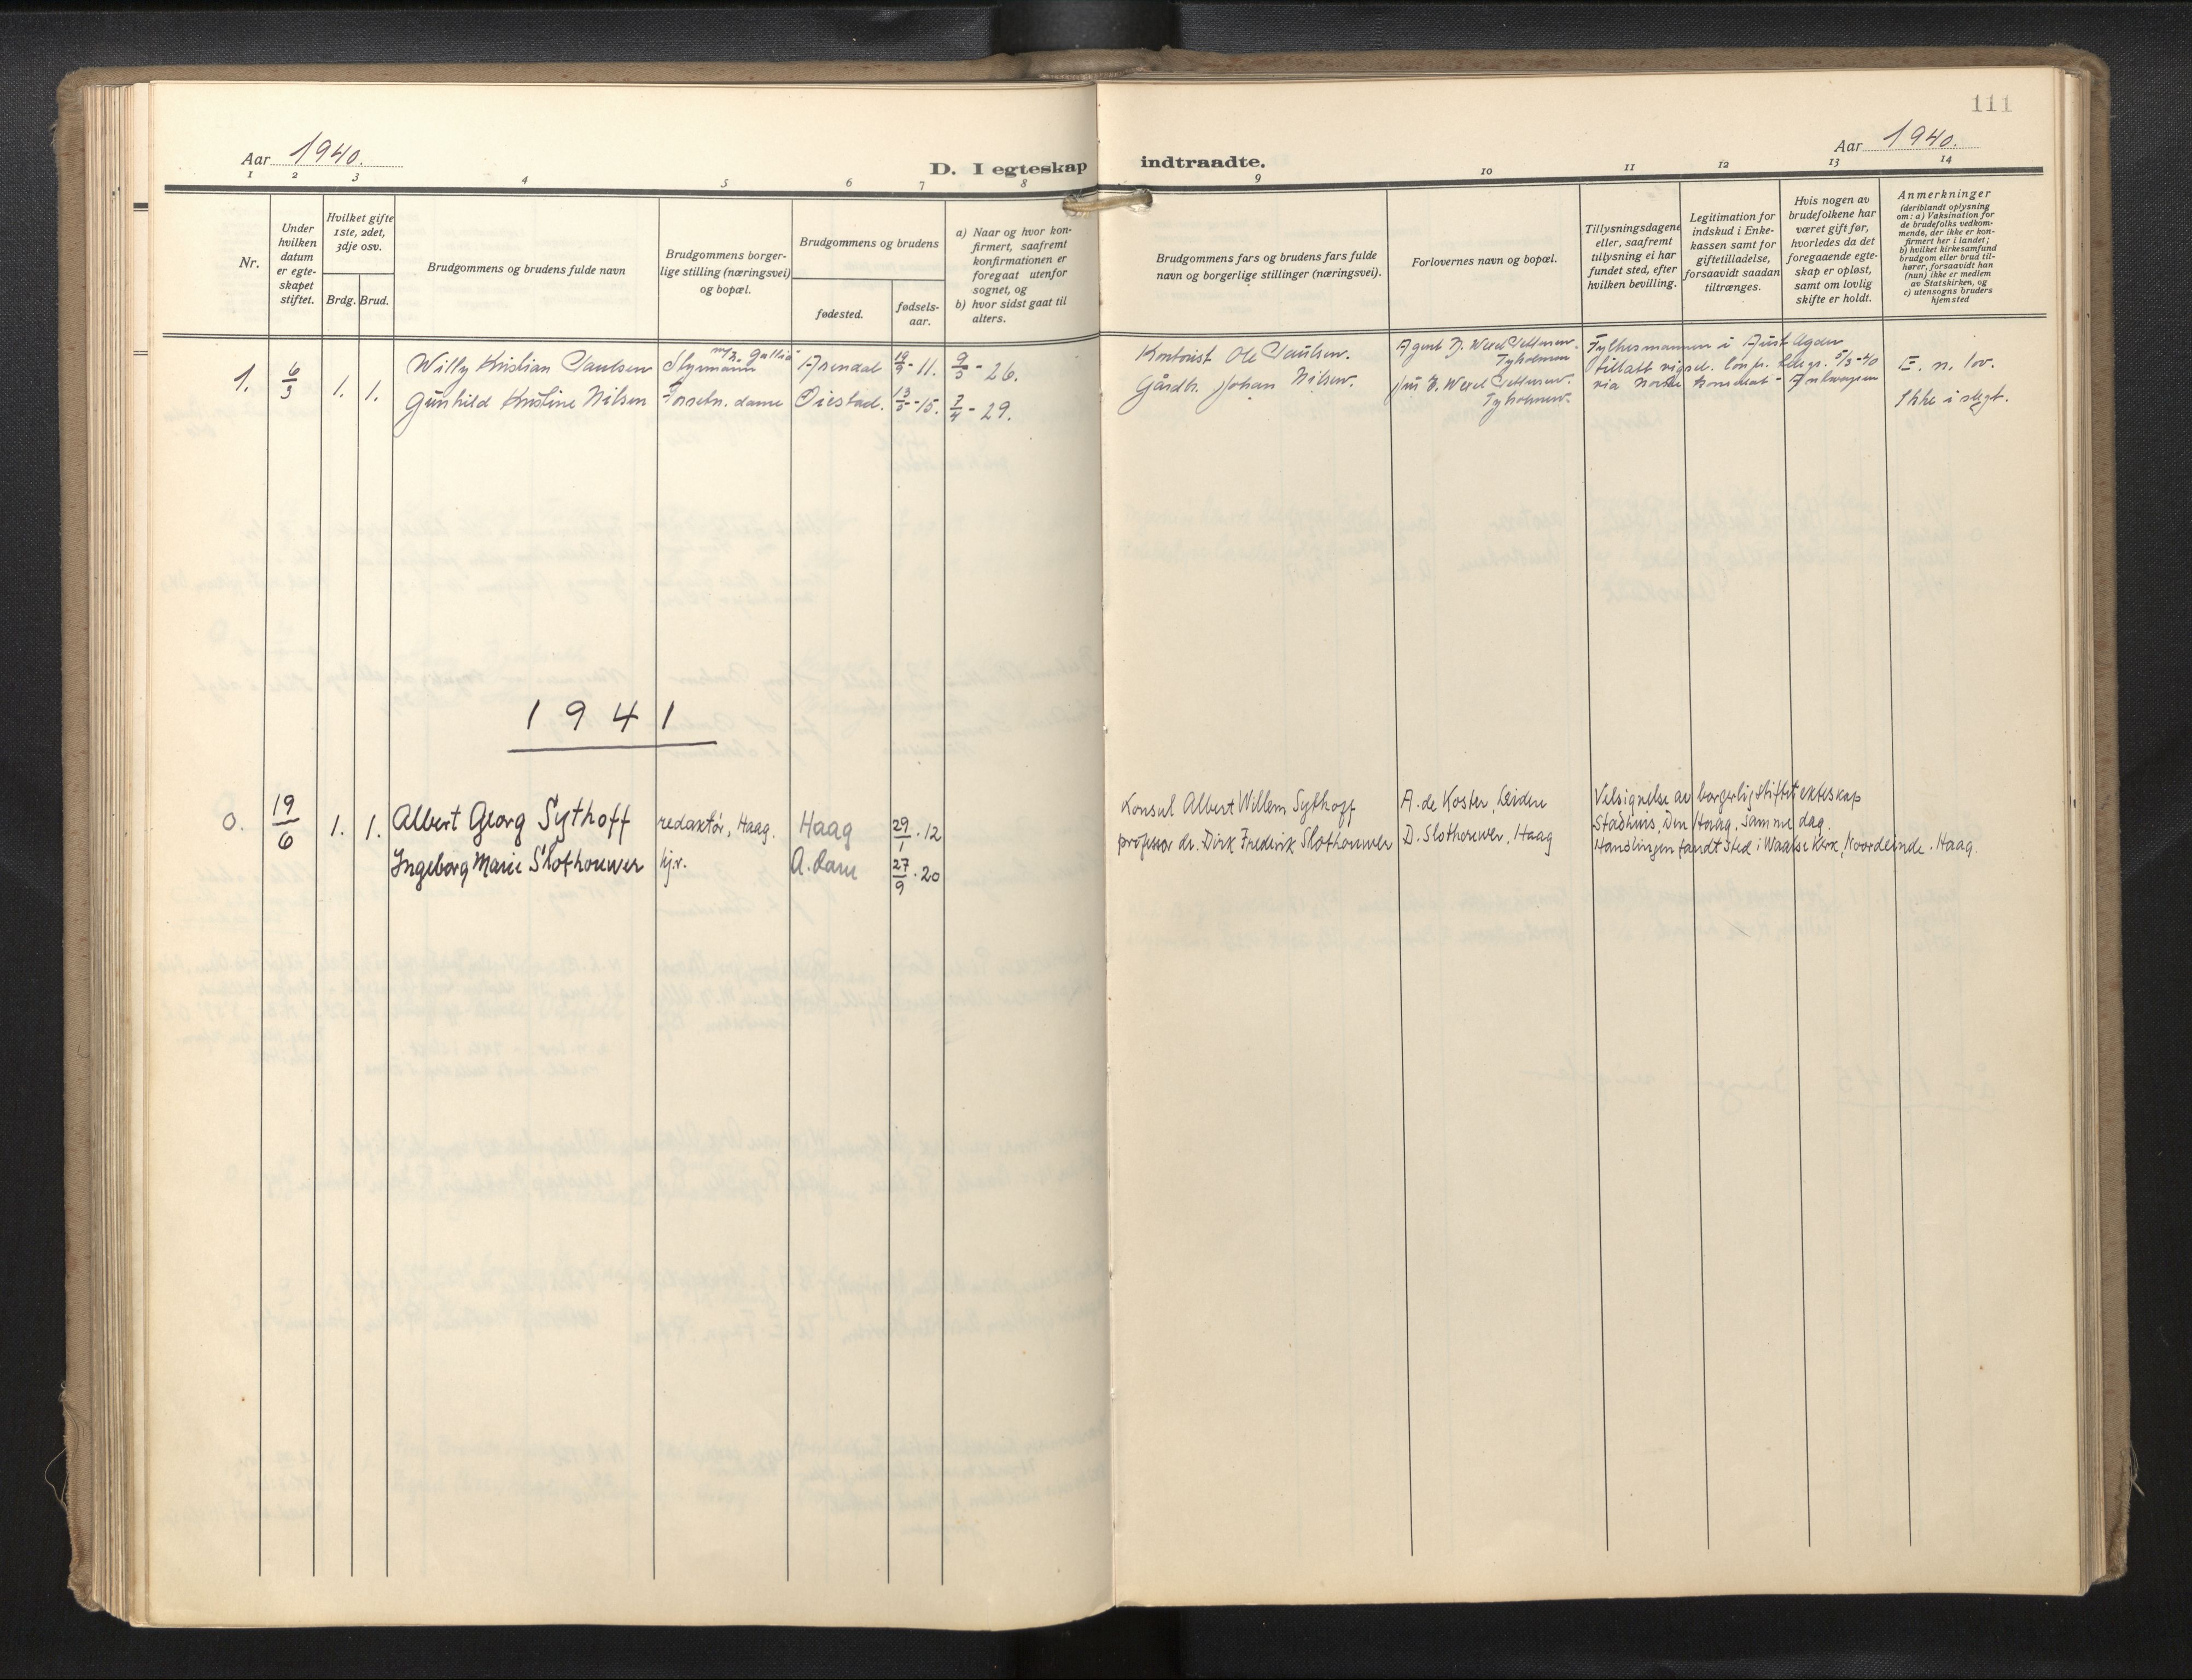 111
Aar 1940.
D. I egteskap indtraadte.
Aar 1940.
1 2 3 4 5 6 7 8 9 10 11 12 13 14
Nr.
Under hvilken datum er egteskapet stiftet.
Hvilket gifte 1ste, 2det, 3dje osv.
Brdg. Brud.
Brudgommens og brudens fulde navn
Brudgommens borgerlige stilling (næringsvei) og bopæl.
Brudgommens og brudens
fødested.
fødselsaar.
a) Naar og hvor konfirmert, saafremt konfirmationen er foregaat utenfor sognet, og
b) hvor sidst gaat til alters.
Brudgommens fars og brudens fars fulde navn og borgerlige stillinger (næringsvei).
Forlovernes navn og bopæl.
Tillysningsdagene eller, saafremt tillysning ei har fundet sted, efter hvilken bevilling.
Legitimation for indskud i Enkekassen samt for giftetilladelse, forsaavidt saadan tiltrænges.
Hvis nogen av brudefolkene har været gift før, hvorledes da det foregaaende egteskap er opløst, samt om lovlig skifte er holdt.
Anmerkninger (deriblandt oplysning om: a) Vaksination for de brudefolks vedkommende, der ikke er konfirmert her i landet; b) hvilket kirkesamfund brudgom eller brud tilhører, forsaavidt han (hun) ikke er medlem av Statskirken, og c) utensogns bruders hjemsted
1. 6/3 1. 1.
Willy Kristian Paulsen Styrmann Arendal 19/9-11. 9/5-26.
Gunhild Kristine Nilsen Forretn. dame Øiestad. 13/5-15. 7/4-29.
Kontorist Ole Paulsen.
Gårdb. Johan Nilsen.
Agent
Tyholmen
Tyholmen.
Fylkesmannen i Aust Agder
tillatt vigsel. telegr. 5/3-40
via Norsk Konsulat - Antwerpen
E. n. lov.
Ikke i slegt.
1941
0. 19/6 1. 1.
Albert Georg Sythoff redaktør, Haag. Haag 29/1.12
Ingeborg Marie Slothouwer hj.v. A.dam 27/9.20
Konsul Albert Willem Sythoff
professor dr. Dirk Frederik Slothouwer
A. de Koster, Leiden
D. Slothouwer, Haag
Velsignelse av borgerlig stiftet ekteskap
Stadhuis, Den Haag, samme dag.
Handlingen fandt sted i Waalse Kerk, Noordeinde. Haag.